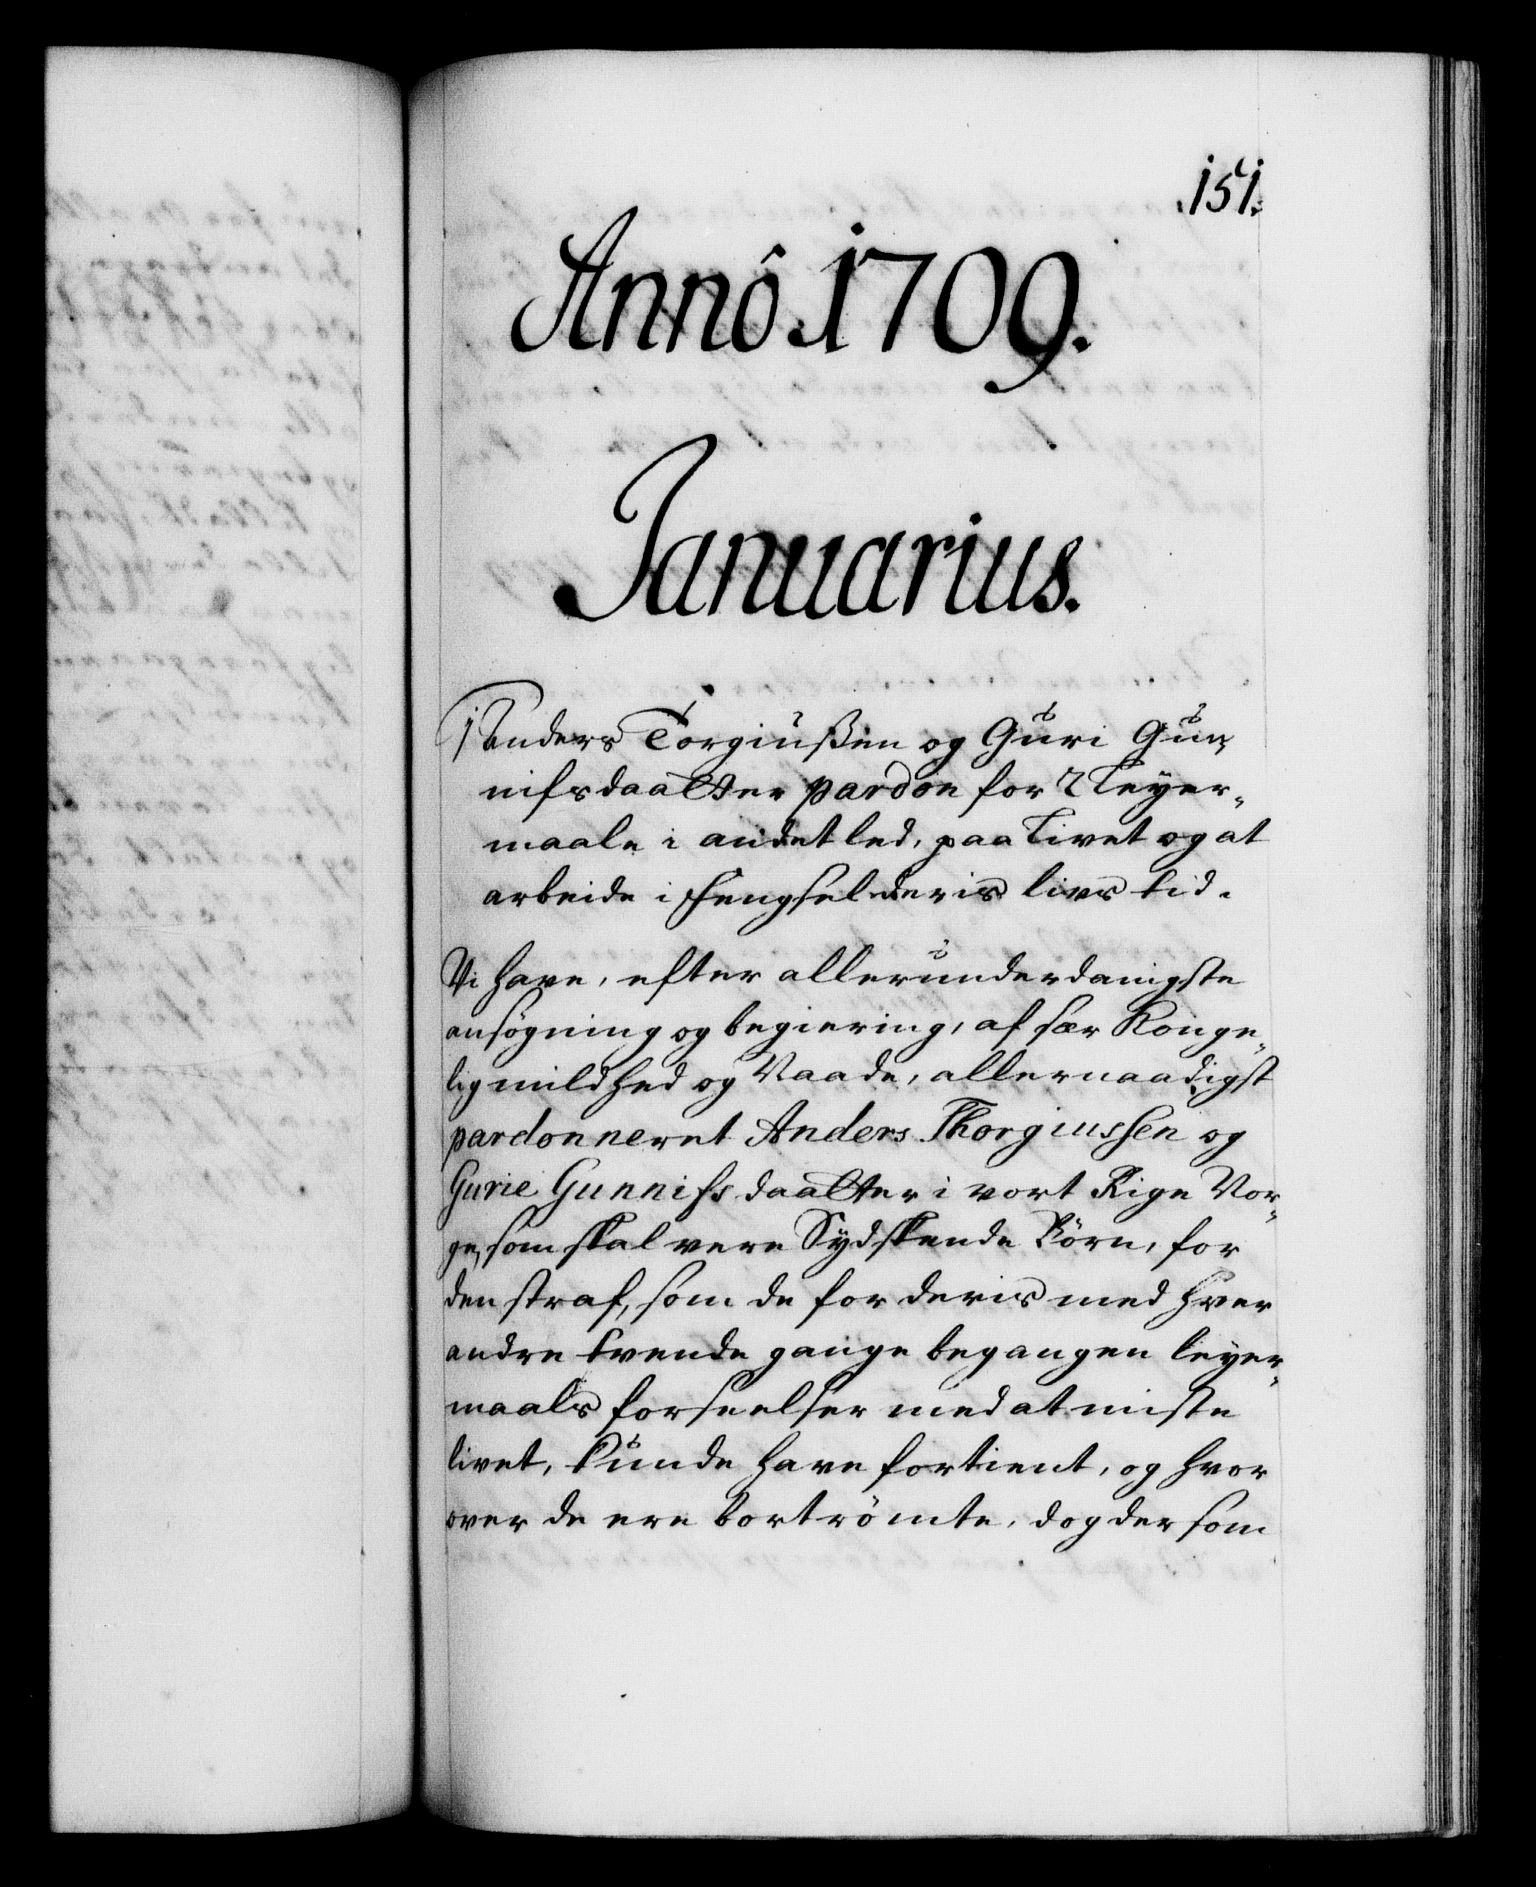 151.
Anno 1709.
Januarius.
1 Anders Torgiußen og Guri Gun-
nifsdaatter pardon for 2 Leyer-
maale i andet led, paa Livet og at
arbeide i fengsel deris livs tid.
Vi have, efter allerunderdanigste
ansøgning og begiering, af sær Konge-
lig mildhed og Naade, allernaadigst
pardonneret Anders Thorgiussen og
Gurie Gunnifs daatter i vort Rige Nor-
ge, som skal vere Sydskende Börn, for
den straf, som de for deris med hver
andre tvende gange begangen leyer-
maals forseelser med at miste
livet, kunde have fortient, og hvor
over de ere bortrömte, dog der som